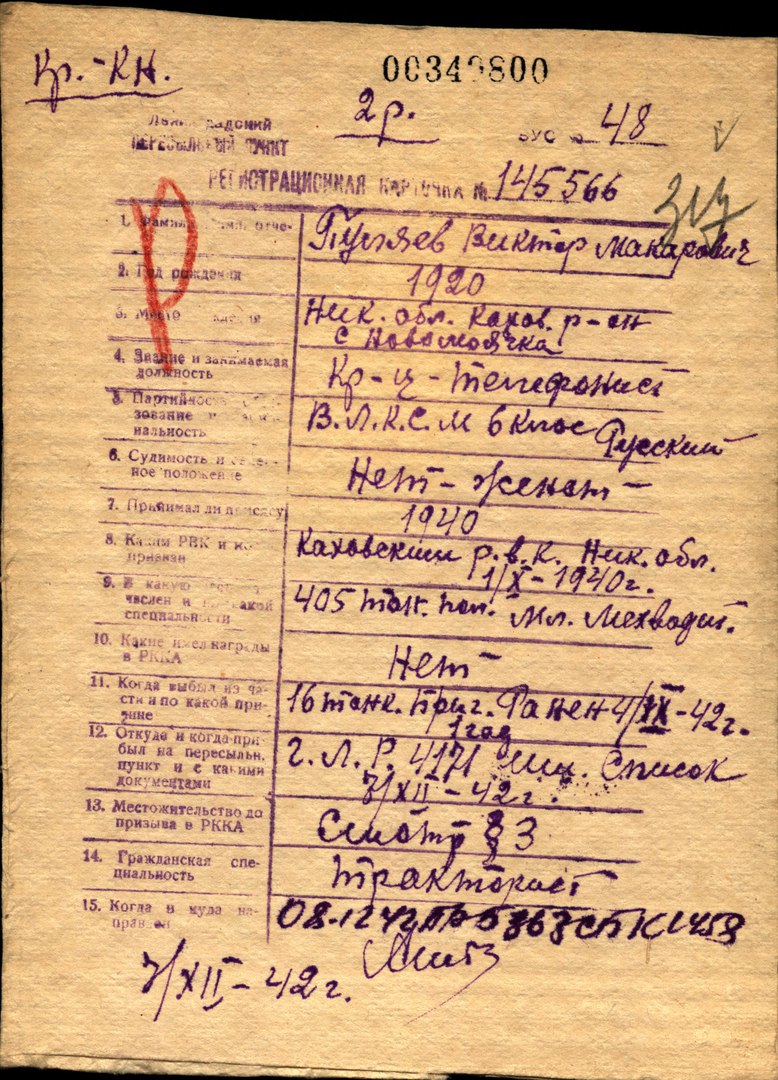 Кр.-кн.
00349800
2р.
ПЕРЕСЫЛЬНЫЙ ПУНКТ
ВУС № 48
РЕГИСТРАЦИОННАЯ КАРТОЧКА № 145566
Р
1. Фамилия, имя, отче-
Виктор Макарович
2. Год рождения
1920
3. Место
Ник. обл. Кахов. р-он
с Новомаячка
4. Звание и занимаемая
должность
Кр-ц-телефонист
5. Партийность
зование
нальность
В.Л.К.С.М 6 клас Русский
6. Судимость и
ное положение
Нет-женат-
7. Принимал ли присягу
1940
8. Каким РВК и
призван
Каховским р.в.к. Ник. обл.
1/X-1940г.
9. В какую
числен и
специальности
405 тан. пол. мл. Мехводит.
10. Какие имел награды
в РККА
Нет
11. Когда выбыл из ча-
сти и по какой при-
чине
16 танк. бриг. Ранен 4/IX-42г.
12. Откуда и когда при-
был на пересыльн.
пункт и с какими
документами
1 год
г.Л.Р. 4171 Список
7/XII-42г.
13. Местожительство до
призыва в РККА
Смотр § 3
14. Гражданская спе-
циальность
тракторист
15. Когда и куда на-
правлен
7/XII-42г.